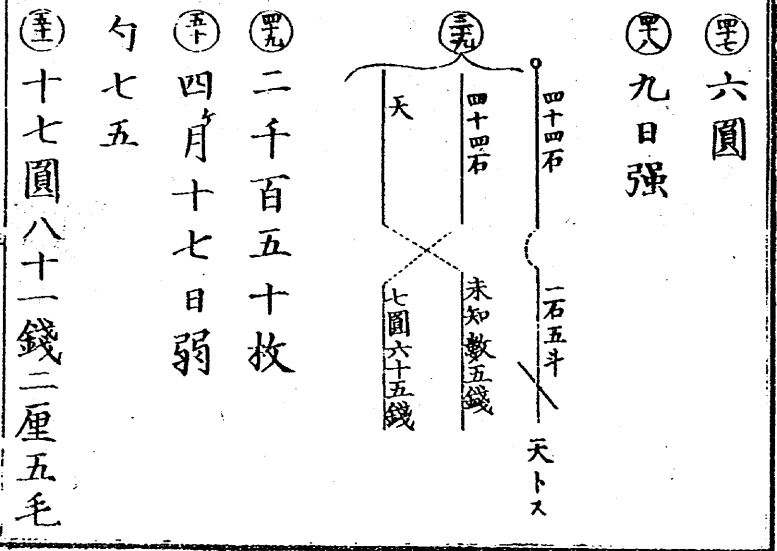 四十七 六圓
四十八 九日强
三十九
四十四石 一石五斗 天トス
四十四石 未知數五錢
天 七圓六十五錢
四十九 二千百五十枚
五十 四ヶ月十七日弱
勺七五
五十一 十七圓八十一錢二厘五毛